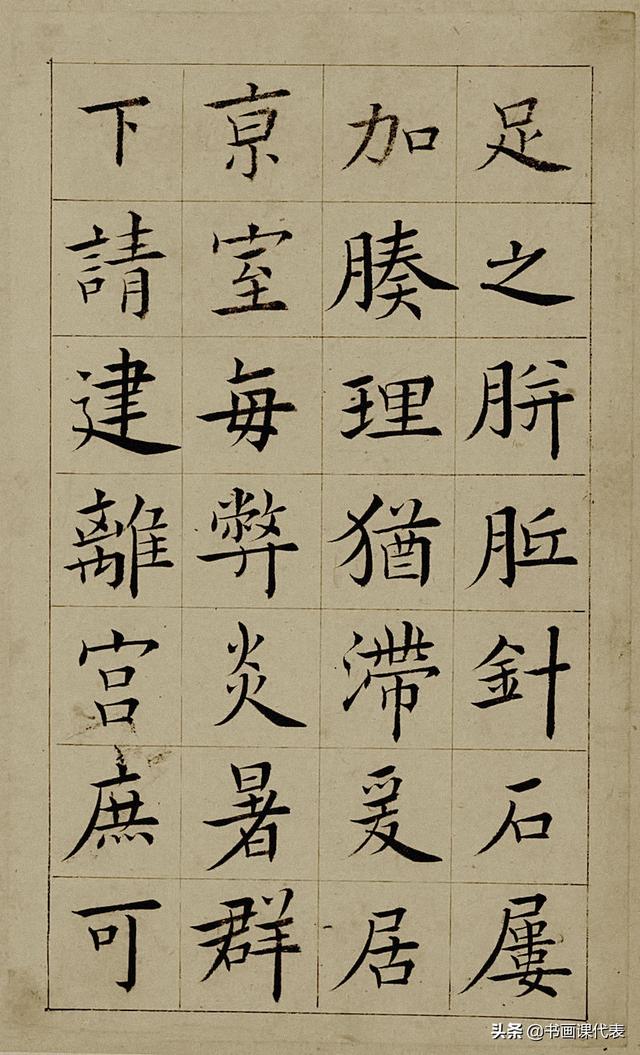 足之胼胝針石屢
加腠理猶滯爰居
亰室每弊炎暑群
下請建離宫庶可
头条 @书画课代表